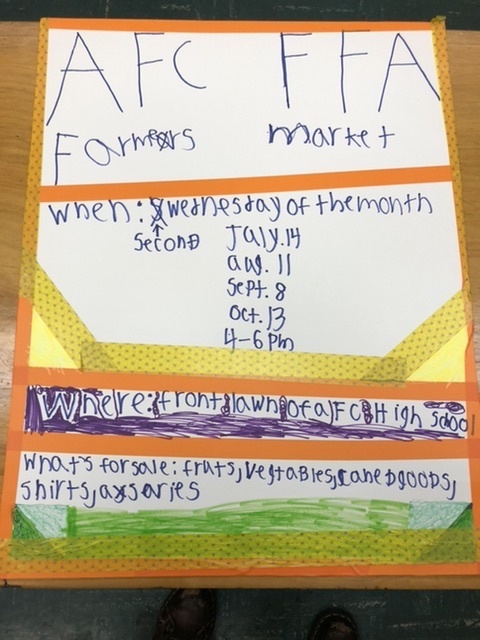 AFC FFA
Farmers market
when: wethesday of the month
↑
Second
July.14
aug. 11
Sept. 8
Oct. 13
4-6 Pm
Where: front lawn of aFC High School
What's for sale: fruts, vegtables, caned goods,
Shirts, axsaries